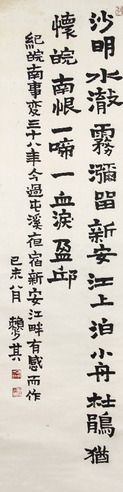 沙明水澈霧瀰留新安江上泊小舟杜鵑猶
懷皖南恨一啼一血淚盈邮
紀皖南事变三十八年今過屯溪夜宿新安江畔有感而作
己未八月 賴少其